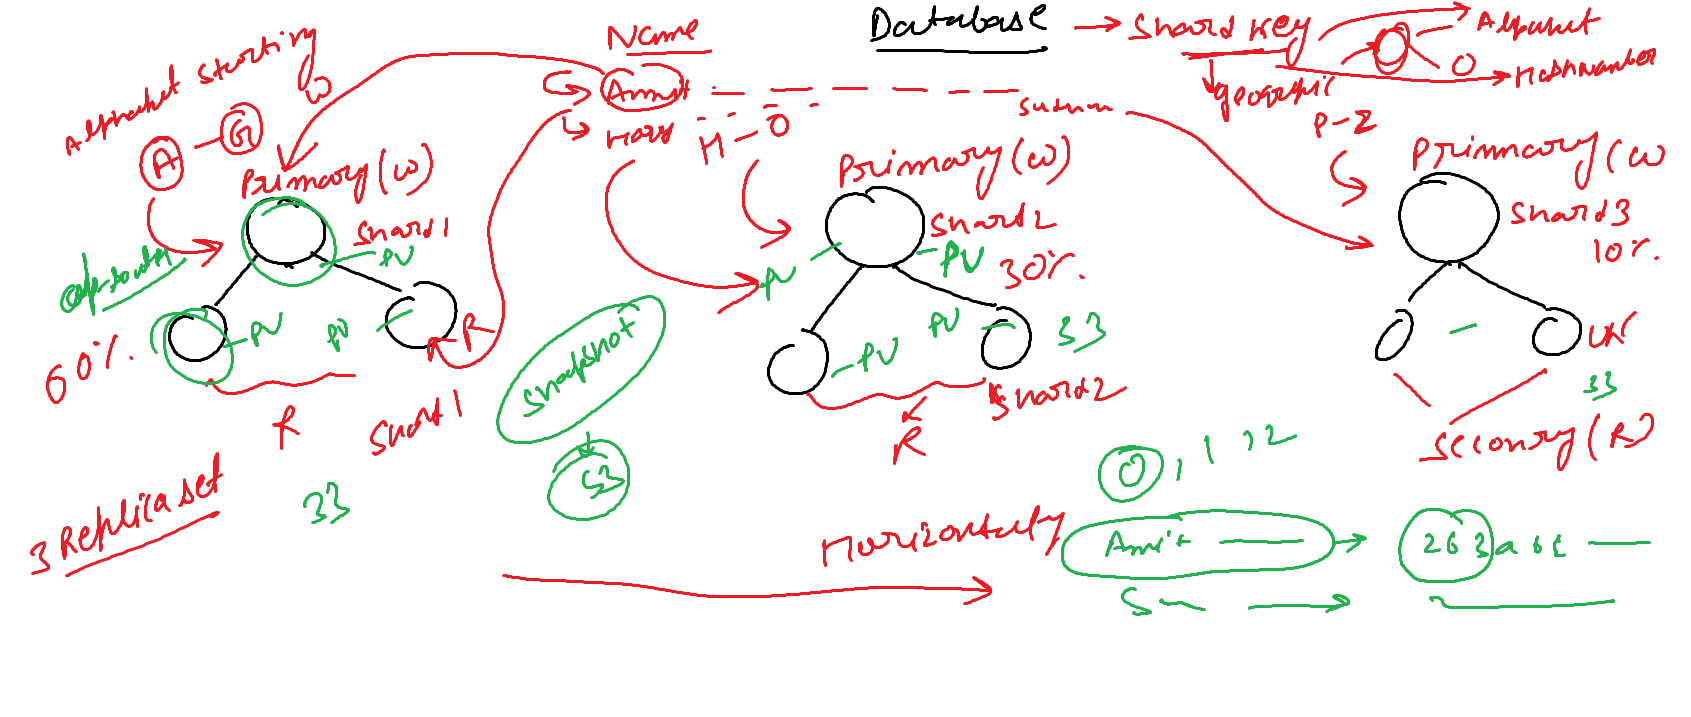 Database → Shard Key
Alphabet
Hashnumber
geographic
Name
Amit
Hary
H-O
P-Z
Alphabet starting
W
A - G
Primary (W)
Shard1
PV
PV
PV
60%.
R
R
Shard1
3 Replica set
33
Snapshot
S3
Primary (W)
Shard2
30%.
PV
PV
PV
PV
33
Shard2
R
Primary (W
Shard3
10%.
33
Secondry (R)
0, 1, 2
Horizontally
Amit → 263abc